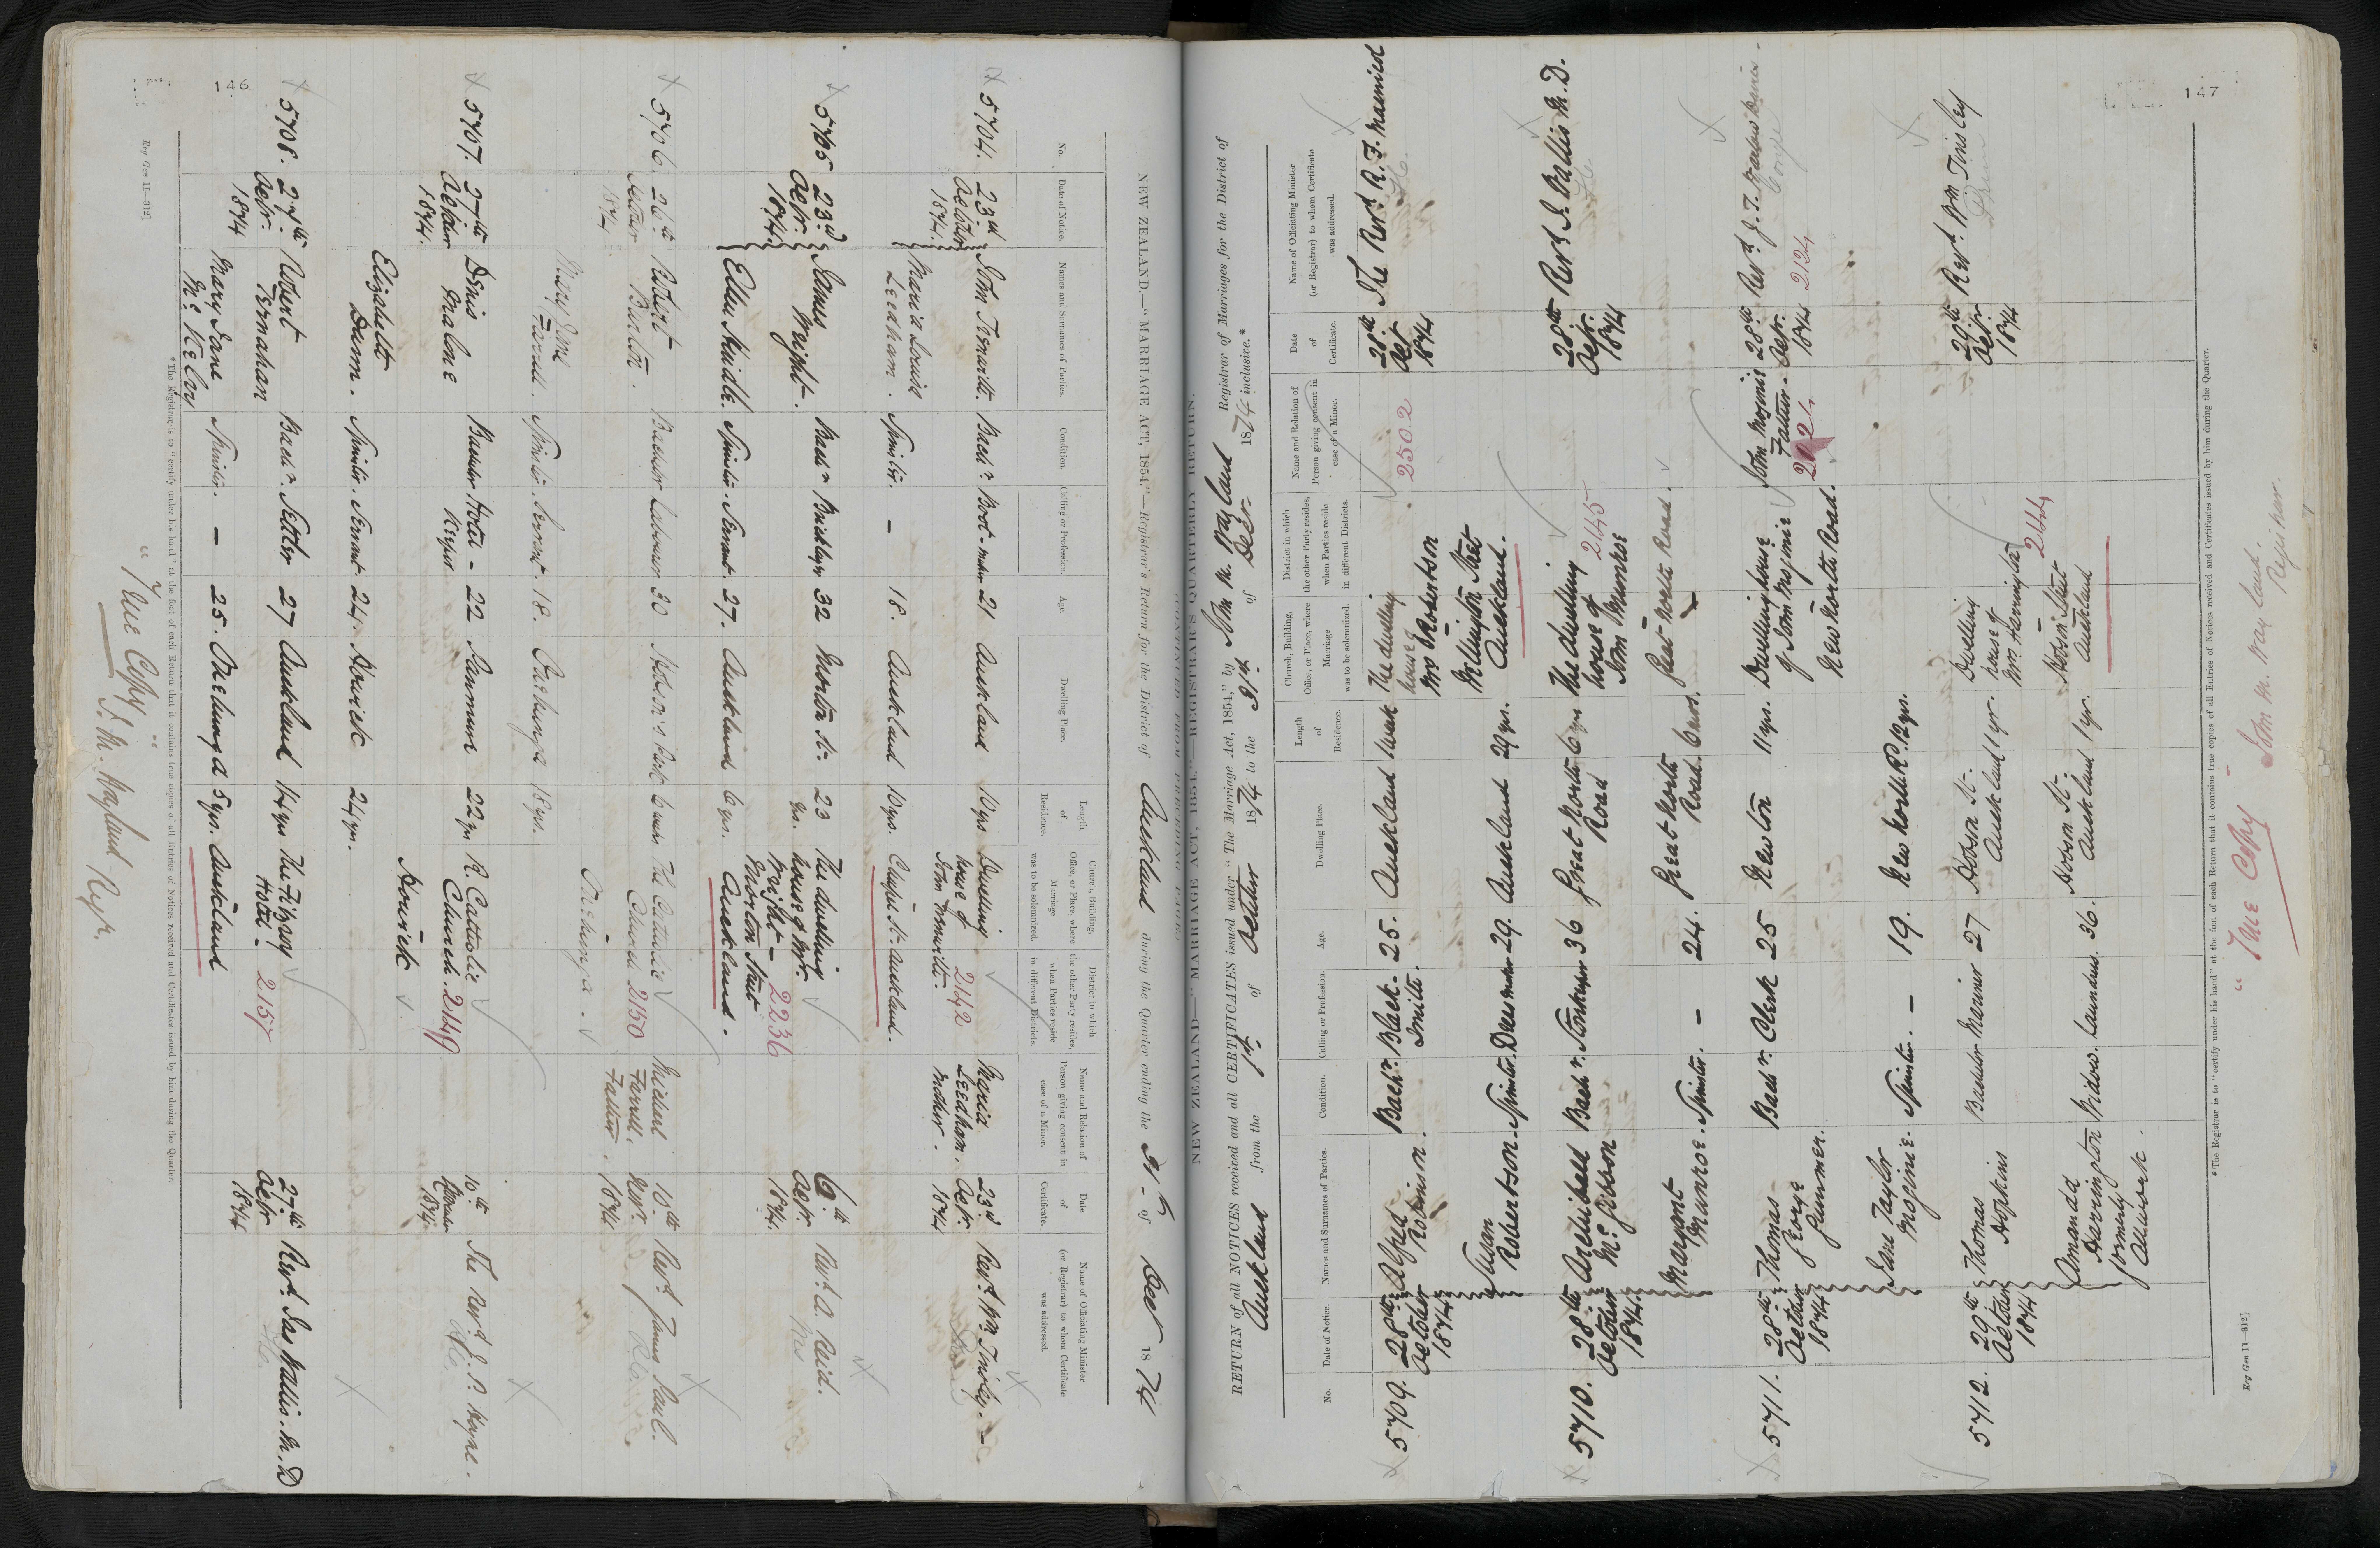 146
NEW ZEALAND.—"MARRIAGE ACT, 1854."—Registrar's Return for the District of Auckland during the Quarter ending the 31st of Decr 1874
No.
Date of Notice.
Names and Surnames of Parties.
Condition.
Calling or Profession.
Age.
Dwelling Place.
Length of Residence.
Church, Building, Office, or Place, where Marriage was to be solemnized.
District in which the other Party resides, when Parties reside in different Districts.
Name and Relation of Person giving consent in case of a Minor.
Date of Certificate.
Name of Officiating Minister (or Registrar) to whom Certificate was addressed.
5704. 23rd October 1874.
Bachr. Boot-maker 21 Auckland 10 yrs Dwelling house of 2142
Maria Leedham. Mother. 23rd Octr. 1874 Revd. Wm. Tinsley.
Maria Louisa Leedham. Spinster. – 18. Auckland 10 yrs. St. Auckland.
5705 23rd Octr. 1874. James Wright. Bachr Bricklayer 32 Morton St. 23 yrs. The dwelling house of Mr. Wright – Morton Street Auckland. 2236
6th Octr. 1874. Revd. A. Reid.
Ellen Spinster. Servant. 27. Auckland 6 yrs.
5706. 26th October 1874 Robert Burton. Bachelor Labourer 30 The Catholic Church 2150 Onehunga.
Michael Farrell, Father. 10th Novr. 1874. Revd. James Paul.
Mary Jane Farrell. Spinster. Servant. 18. Onehunga 18 yrs.
5707. 27th October 1874. Denis Malone Bachelor Hotel-Keeper 22 Panmure 22 yrs R. Catholic Church. 2149 Howick
10th 1874. The Revd.
Elizabeth Dunn. Spinster. Servant. 24. Howick 24 yrs.
5708. 27th Octr. 1874 Robert Bernahan Bachr. Settler 27 Auckland 14 yrs The Fitzroy Hotel – Auckland 2157
27th Octr 1874 Revd. Jas Wallis. M.D
Mary Jane McKelvy Spinster. – 25. Onehunga 5 yrs.
* The Registrar is to "certify under his hand" at the foot of each Return that it contains true copies of all Entries of Notices received and Certificates issued by him during the Quarter.
"True Copy"
J. M. Wayland Regr.
Reg Gen 11—312]
147
NEW ZEALAND.—"MARRIAGE ACT, 1854."—REGISTRAR'S QUARTERLY RETURN.
(CONTINUED FROM PRECEDING PAGE.)
RETURN of all NOTICES received and all CERTIFICATES issued under "The Marriage Act, 1854," by John M. Wayland Registrar of Marriages for the District of
Auckland from the 1st of October 1874 to the 31st of Decr 1874 inclusive.*
No.
Date of Notice.
Names and Surnames of Parties.
Condition.
Calling or Profession.
Age.
Dwelling Place.
Length of Residence.
Church, Building, Office, or Place, where Marriage was to be solemnized.
District in which the other Party resides, when Parties reside in different Districts.
Name and Relation of Person giving consent in case of a Minor.
Date of Certificate.
Name of Officiating Minister (or Registrar) to whom Certificate was addressed.
5709. 28th October 1874 Alfred Robinson. Bachr. Black-Smith. 25. Auckland 1 week The dwelling house of Mr. Robertson Wellington Street Auckland.
2502 28th Oct 1874 The Revd. R. F. Macnicol
Susan Robertson. Spinster. Dress maker 29. Auckland 29 yrs.
5710. 28th October 1874. Archibald McGibbon Bachr. Storekeeper 36 Great North Road 6 yrs The dwelling house of John Munroe Great North Road. 2145
28th Octr. 1874 Revd J. Wallis M.D.
Margaret Munroe. Spinster. – 24. Great North Road. 6 mos.
5711. 28th October 1874 Thomas George Plummer. Bachr. Clerk 25 Newton 11 yrs. Dwelling house of John Mojinie New North Road.
John Mojinie Father. 28th Octr. 1874 2124
Jane Taylor Mojinie. Spinster. – 19. New North Rd. 12 yrs.
5712. 29th October 1874 Thomas Hopkins Bachelor Mariner 27 Hobson St. Auckland 1 yr. Dwelling house of Mr. Harrington Hobson Street Auckland 2144
29th Octr. 1874 Revd. Wm Tinsley
Amanda Harrington formerly Widow. Laundress. 36. Hobson St. Auckland 1 yr.
* The Registrar is to "certify under his hand" at the foot of each Return that it contains true copies of all Entries of Notices received and Certificates issued by him during the Quarter.
"True Copy" John M. Wayland. Registrar.
Reg Gen 11—312]